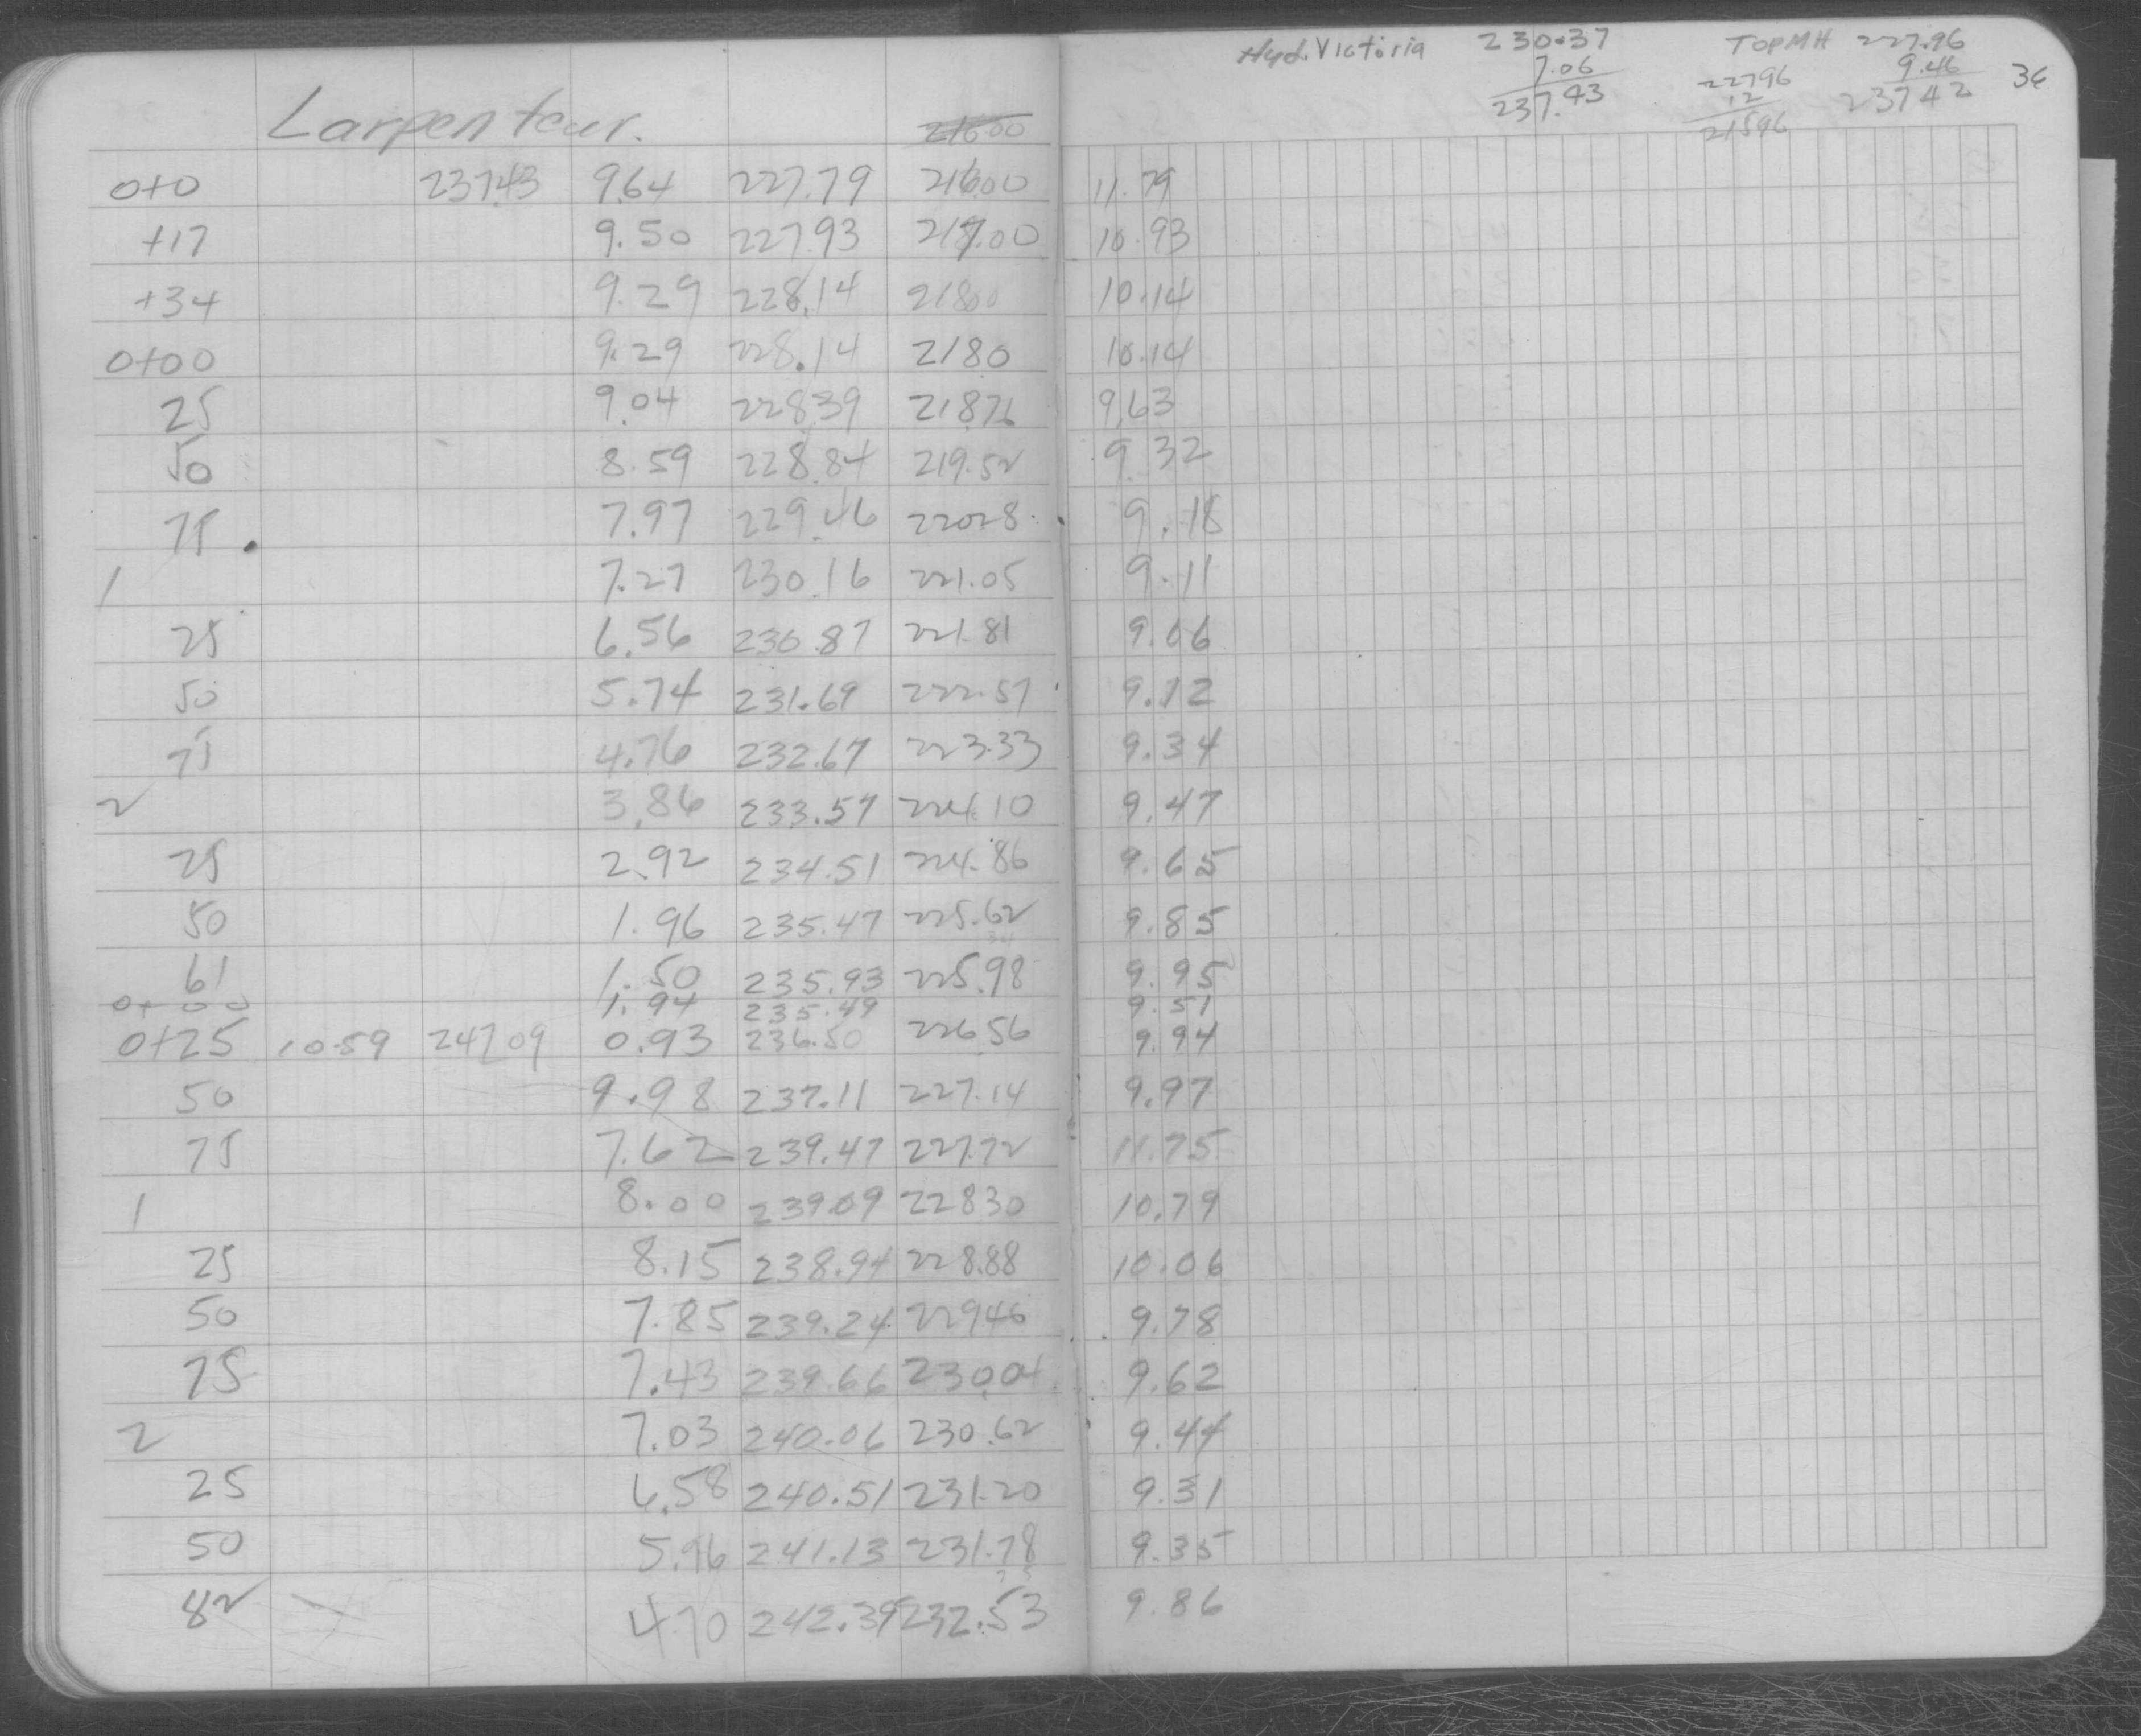 Hyd. Victoria 230.37 TOPMH 227.96
7.06 22796 9.46 36
237.43 12 23742
21596
Larpenteur. 216.00
0+0 237.43 9.64 227.79 216.00 11.79
+17 9.50 227.93 217.00 10.93
+34 9.29 228.14 218.00 10.14
0+00 9.29 228.14 218.0 10.14
25 9.04 228.39 218.76 9.63
50 8.59 228.84 219.52 9.32
75 7.97 229.46 220.28 9.18
1 7.27 230.16 221.05 9.11
25 6.56 230.87 221.81 9.06
50 5.74 231.69 222.57 9.12
75 4.76 232.67 223.33 9.34
2 3.86 233.57 224.10 9.47
25 2.92 234.51 224.86 9.65
50 1.96 235.47 225.62 9.85
61 1.50 235.93 225.98 9.95
0+00 1.94 235.49 9.51
0+25 10.59 247.09 0.93 236.50 226.56 9.94
50 9.98 237.11 227.14 9.97
75 7.62 239.47 227.72 11.75
1 8.00 239.09 228.30 10.79
25 8.15 238.94 228.88 10.06
50 7.85 239.24 229.46 9.78
75 7.43 239.66 230.04 9.62
2 7.03 240.06 230.62 9.44
25 6.58 240.51 231.20 9.31
50 5.96 241.13 231.78 9.35
82 4.70 242.39 232.53 9.86